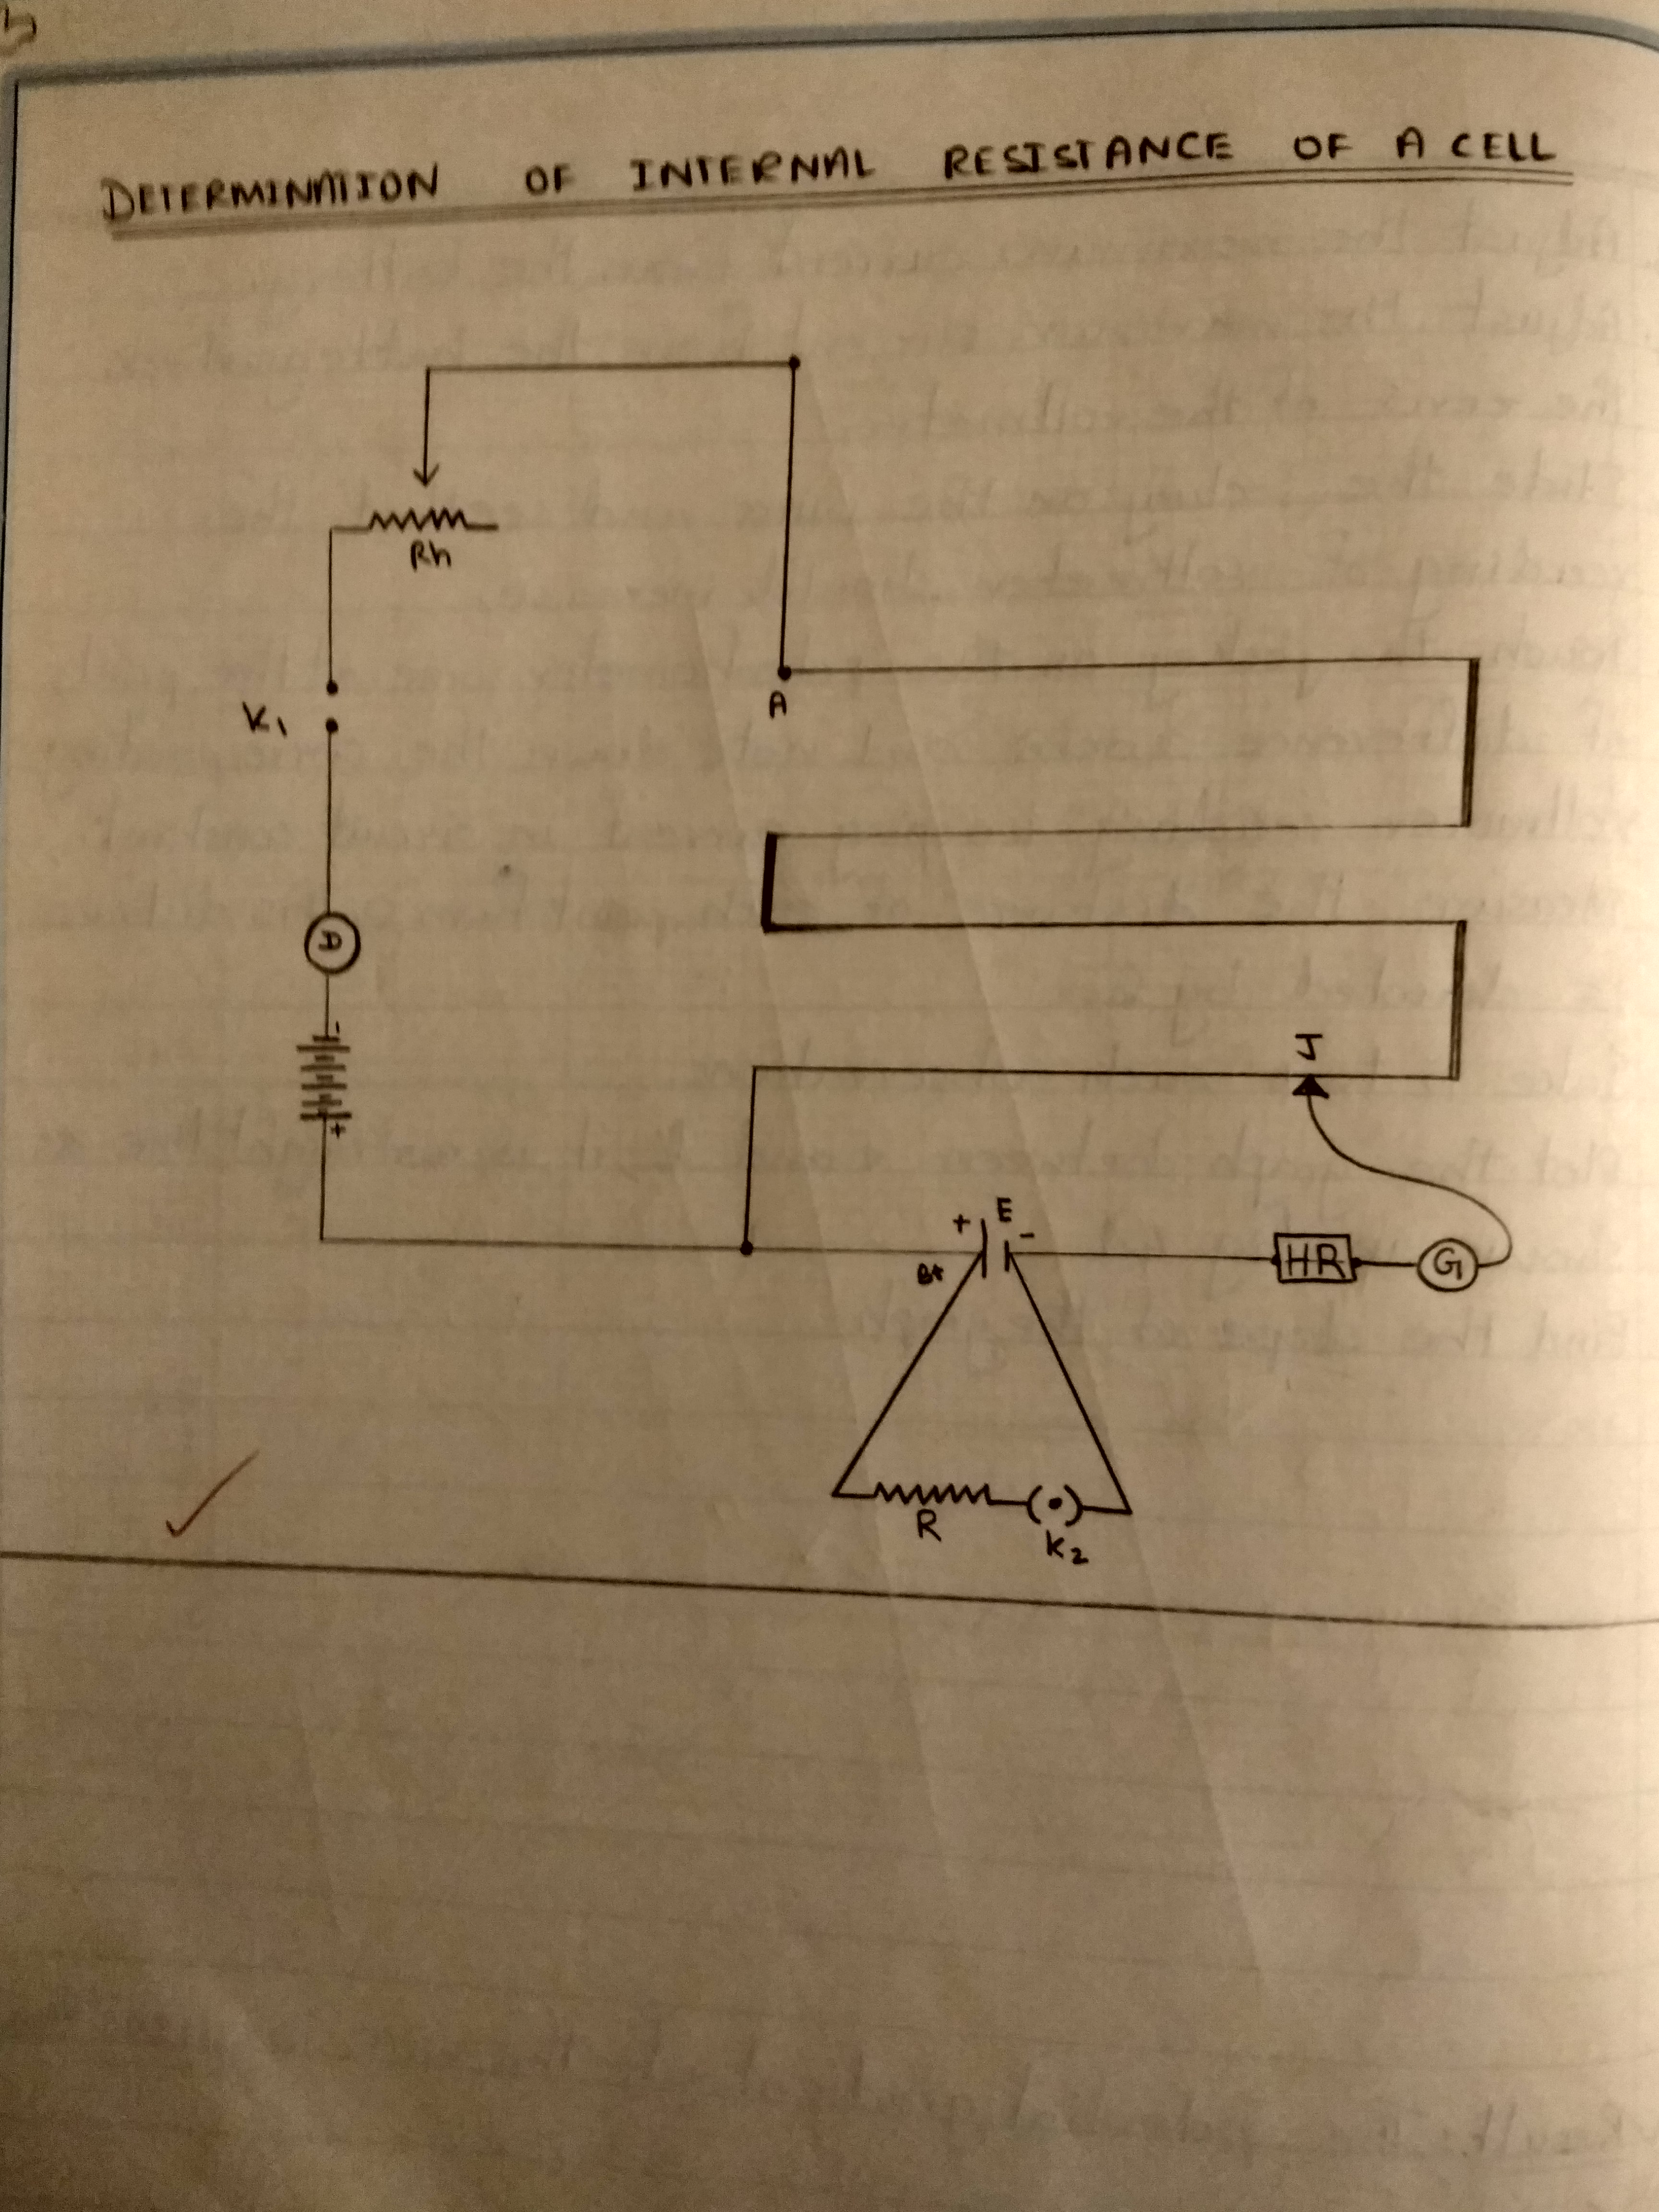 DETERMINATION OF INTERNAL RESISTANCE OF A CELL
Rh
A
K1
D
-
+
J
+ E -
B+
HR
G
R
K2